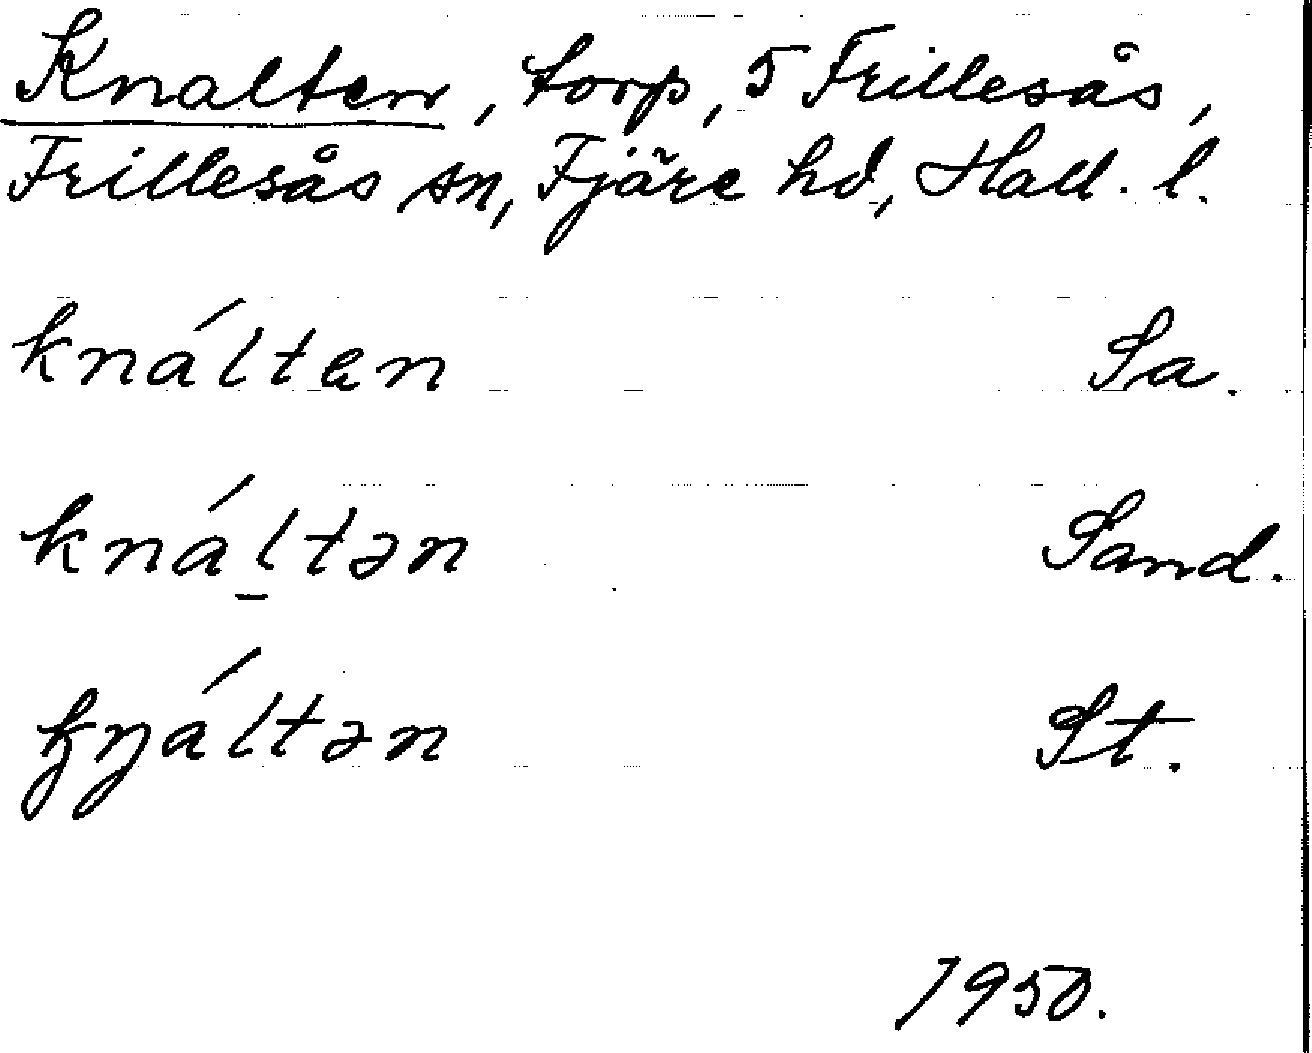 Knalten, torp, 5 Frillesås,
Frillesås sn, Fjäre hd, Hall. l.
knáltən Sa.
knáḻtən Sand.
kŋáltən St.
1950.